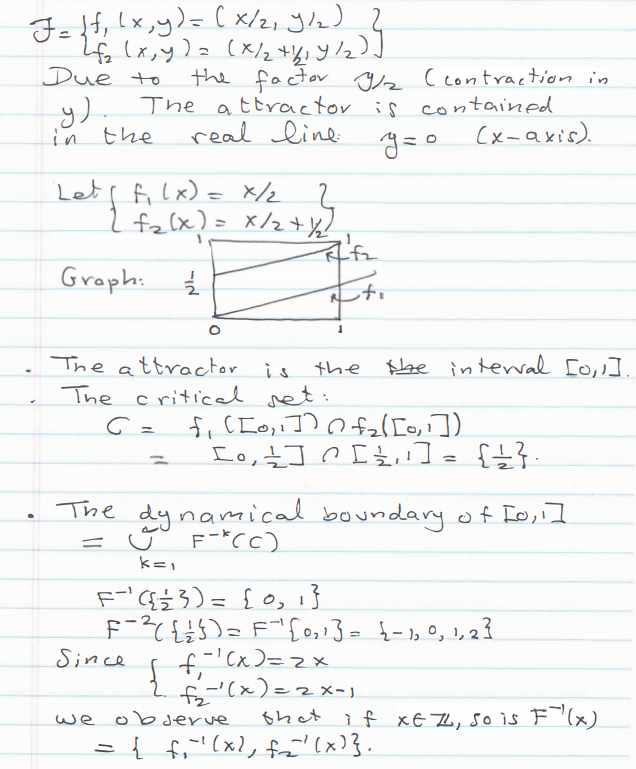 F = { f₁(x,y) = (x/2, y/2)
f₂(x,y) = (x/2+½, y/2) }
Due to the factor y/2 (contraction in
y). The attractor is contained
in the real line: y=0 (x-axis).
Let { f₁(x) = x/2
f₂(x) = x/2+½ }
1 1
f₂
Graph: ½
f₁
0 1
• The attractor is the the interval [0,1].
• The critical set:
C = f₁([0,1]) ∩ f₂([0,1])
= [0,½] ∩ [½,1] = {½}.
• The dynamical boundary of [0,1]
= ∪ F⁻ᵏ(C)
k=1
F⁻¹({½}) = {0, 1}
F⁻²({½}) = F⁻¹{0,1} = {-1, 0, 1, 2}
Since { f₁⁻¹(x) = 2x
f₂⁻¹(x) = 2x-1
we observe that if x∈ℤ, so is F⁻¹(x)
= { f₁⁻¹(x), f₂⁻¹(x)}.